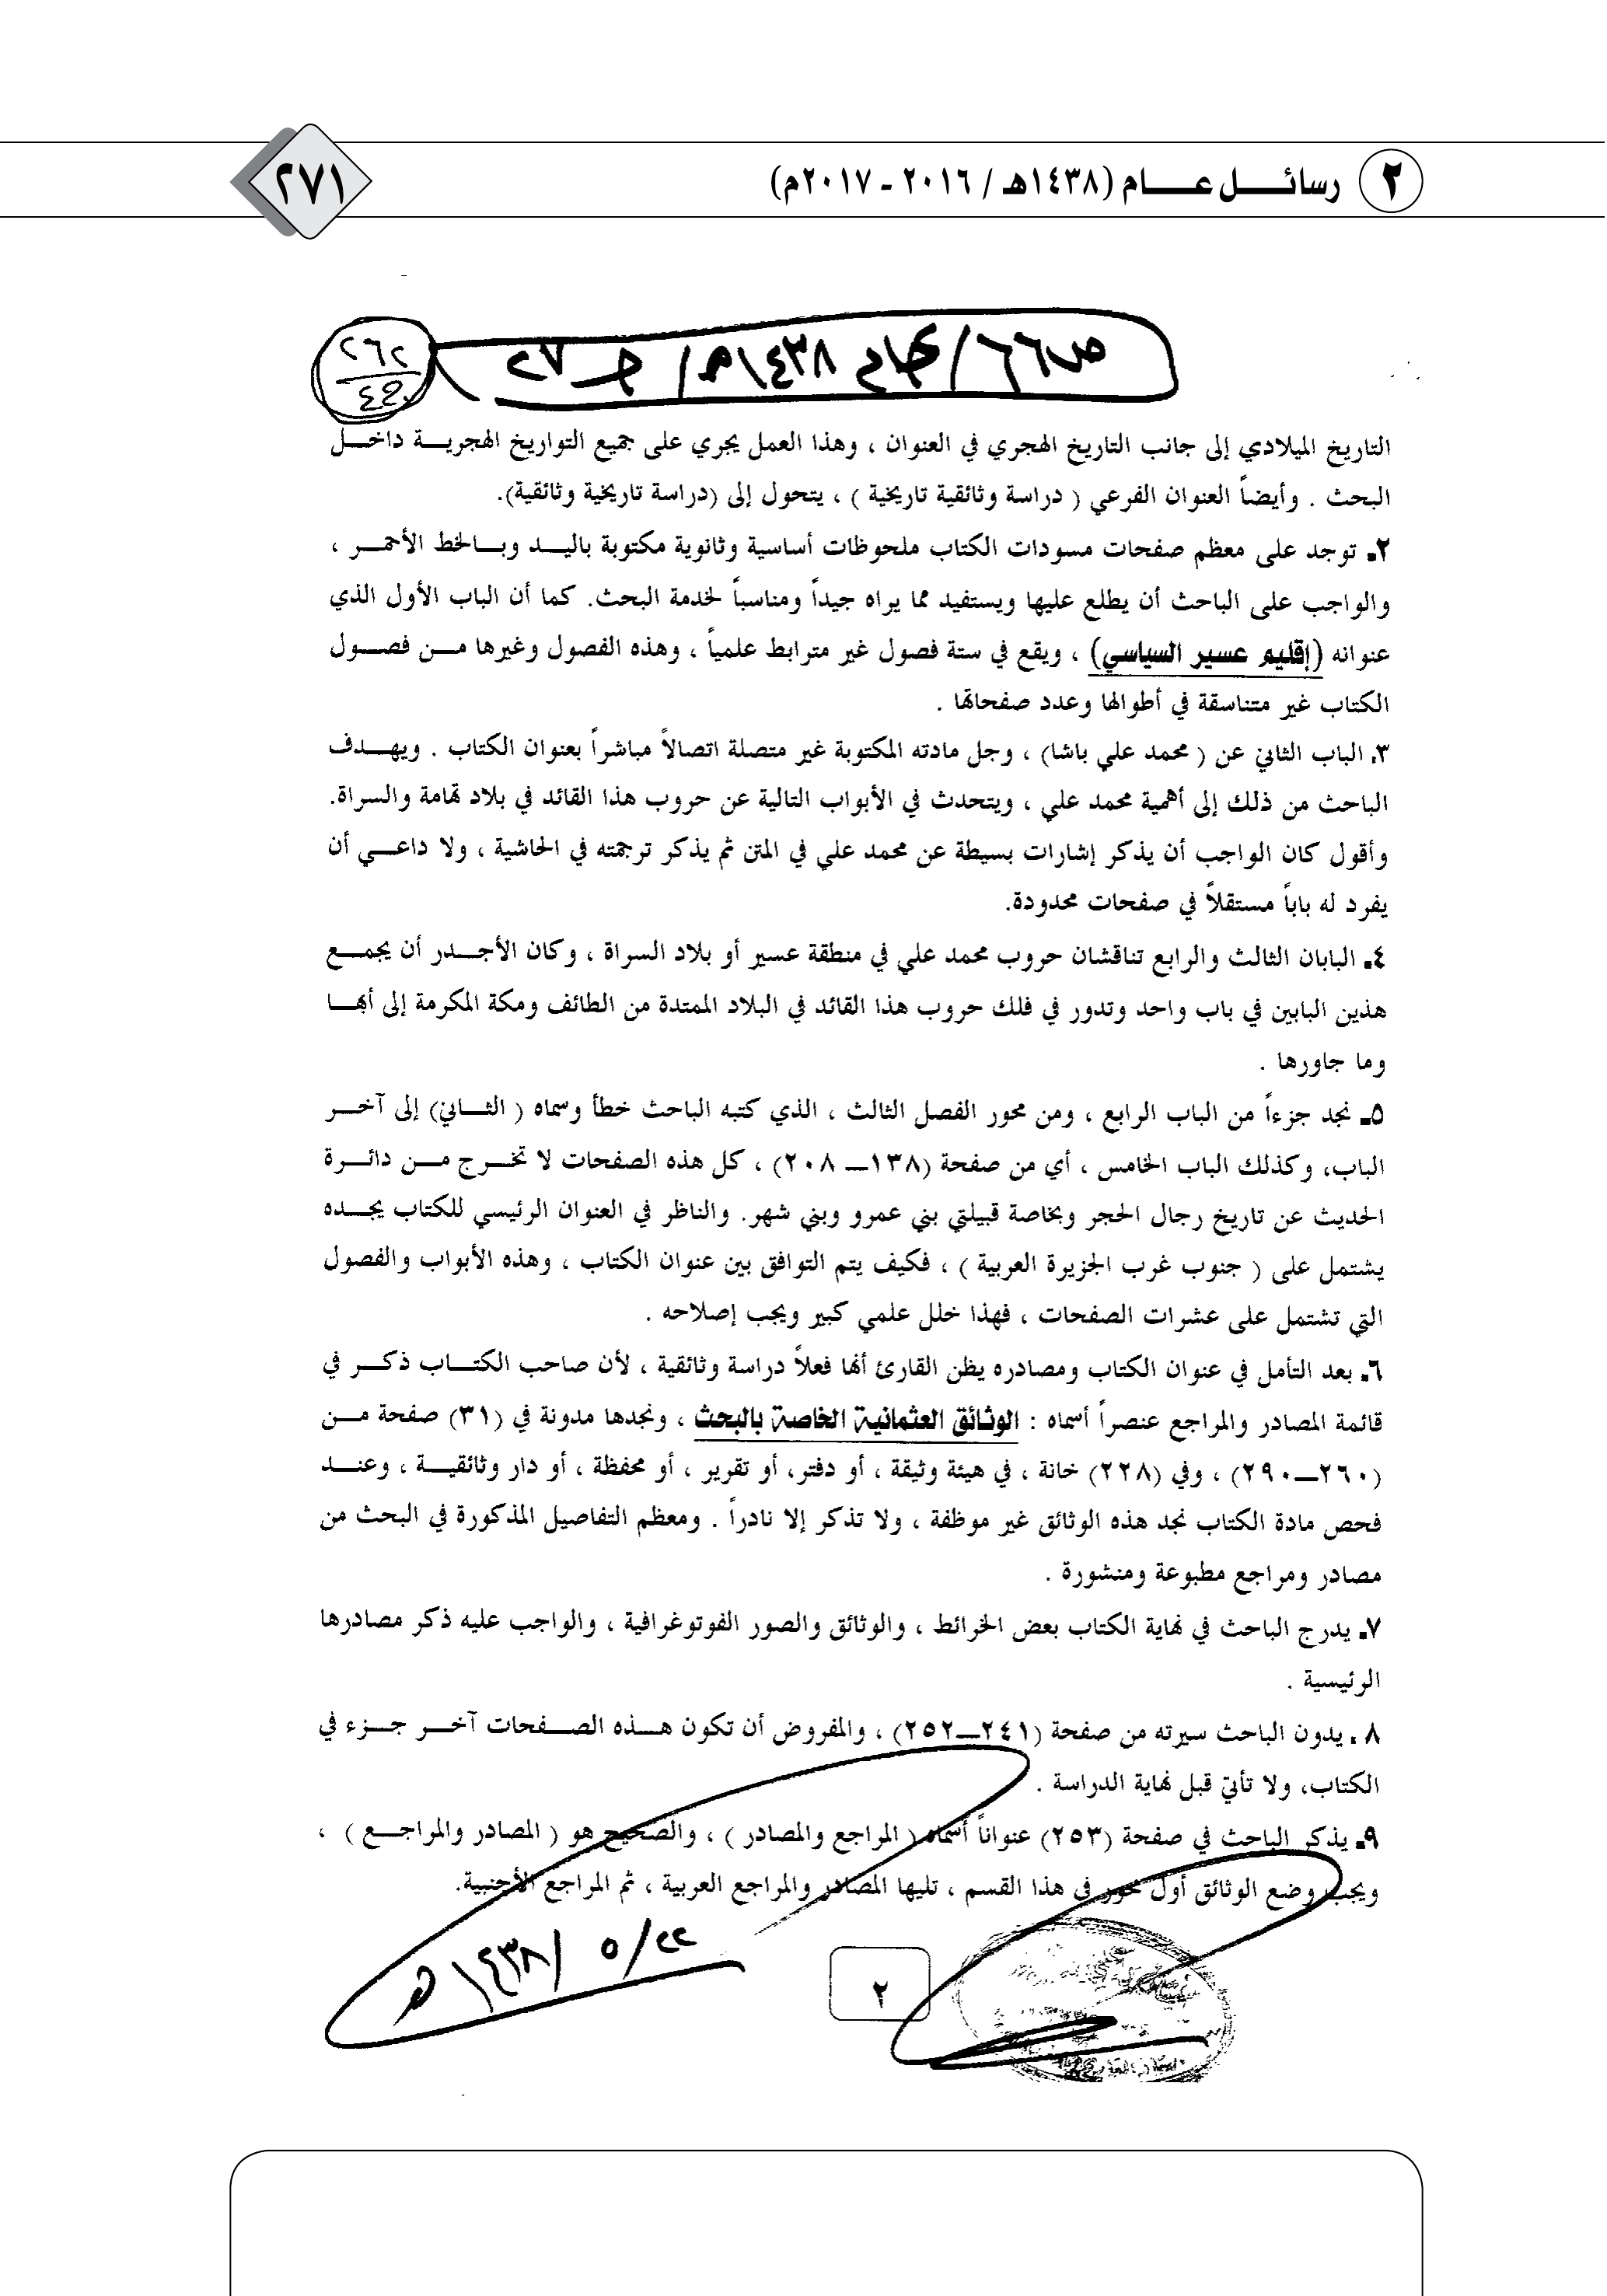 ٢ رسائل عام (١٤٣٨هـ / ٢٠١٦ - ٢٠١٧م) ٢٧١
ص٦٦/ لعام ١٤٣٨هـ/ جـ ٢٧
التاريخ الميلادي إلى جانب التاريخ الهجري في العنوان ، وهذا العمل يجري على جميع التواريخ الهجرية داخل
البحث . وأيضاً العنوان الفرعي ( دراسة وثائقية تاريخية ) ، يتحول إلى (دراسة تاريخية وثائقية).
٢. توجد على معظم صفحات مسودات الكتاب ملحوظات أساسية وثانوية مكتوبة باليد وبالخط الأحمر ،
والواجب على الباحث أن يطلع عليها ويستفيد مما يراه جيداً ومناسباً لخدمة البحث. كما أن الباب الأول الذي
عنوانه (إقليم عسير السياسي) ، ويقع في ستة فصول غير مترابط علمياً ، وهذه الفصول وغيرها من فصول
الكتاب غير متناسقة في أطوالها وعدد صفحاتها .
٣. الباب الثاني عن ( محمد علي باشا) ، وجل مادته المكتوبة غير متصلة اتصالاً مباشراً بعنوان الكتاب . ويهدف
الباحث من ذلك إلى أهمية محمد علي ، ويتحدث في الأبواب التالية عن حروب هذا القائد في بلاد تهامة والسراة.
وأقول كان الواجب أن يذكر إشارات بسيطة عن محمد علي في المتن ثم يذكر ترجمته في الحاشية ، ولا داعي أن
يفرد له باباً مستقلاً في صفحات محدودة.
٤. البابان الثالث والرابع تناقشان حروب محمد علي في منطقة عسير أو بلاد السراة ، وكان الأجدر أن يجمع
هذين البابين في باب واحد وتدور في فلك حروب هذا القائد في البلاد الممتدة من الطائف ومكة المكرمة إلى أبها
وما جاورها .
٥. نجد جزءاً من الباب الرابع ، ومن محور الفصل الثالث ، الذي كتبه الباحث خطأ وسماه ( الثاني) إلى آخر
الباب، وكذلك الباب الخامس ، أي من صفحة (١٣٨ــ ٢٠٨) ، كل هذه الصفحات لا تخرج من دائرة
الحديث عن تاريخ رجال الحجر وبخاصة قبيلتي بني عمرو وبني شهر. والناظر في العنوان الرئيسي للكتاب يجده
يشتمل على ( جنوب غرب الجزيرة العربية ) ، فكيف يتم التوافق بين عنوان الكتاب ، وهذه الأبواب والفصول
التي تشتمل على عشرات الصفحات ، فهذا خلل علمي كبير ويجب إصلاحه .
٦. بعد التأمل في عنوان الكتاب ومصادره يظن القارئ أنها فعلاً دراسة وثائقية ، لأن صاحب الكتاب ذكر في
قائمة المصادر والمراجع عنصراً أسماه : الوثائق العثمانية الخاصة بالبحث ، ونجدها مدونة في (٣١) صفحة من
(٢٦٠ــ٢٩٠) ، وفي (٢٢٨) خانة ، في هيئة وثيقة ، أو دفتر، أو تقرير ، أو محفظة ، أو دار وثائقية ، وعند
فحص مادة الكتاب نجد هذه الوثائق غير موظفة ، ولا تذكر إلا نادراً . ومعظم التفاصيل المذكورة في البحث من
مصادر ومراجع مطبوعة ومنشورة .
٧. يدرج الباحث في نهاية الكتاب بعض الخرائط ، والوثائق والصور الفوتوغرافية ، والواجب عليه ذكر مصادرها
الرئيسية .
٨ . يدون الباحث سيرته من صفحة (٢٤١ــ٢٥٢) ، والمفروض أن تكون هذه الصفحات آخر جزء في
الكتاب، ولا تأتي قبل نهاية الدراسة .
٩. يذكر الباحث في صفحة (٢٥٣) عنواناً أسماه ( المراجع والمصادر ) ، والصحيح هو ( المصادر والمراجع ) ،
ويجب وضع الوثائق أول محور في هذا القسم ، تليها المصادر والمراجع العربية ، ثم المراجع الأجنبية.
٢٢/ ٥ /١٤٣٨هـ
٢